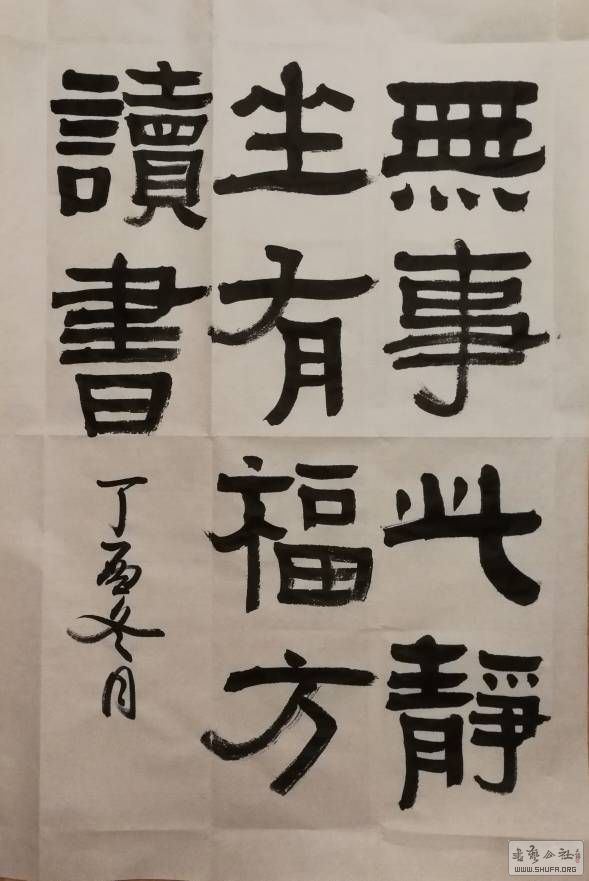 無事此靜
坐有福方
讀書
丁酉冬月
WWW.SHUFA.ORG